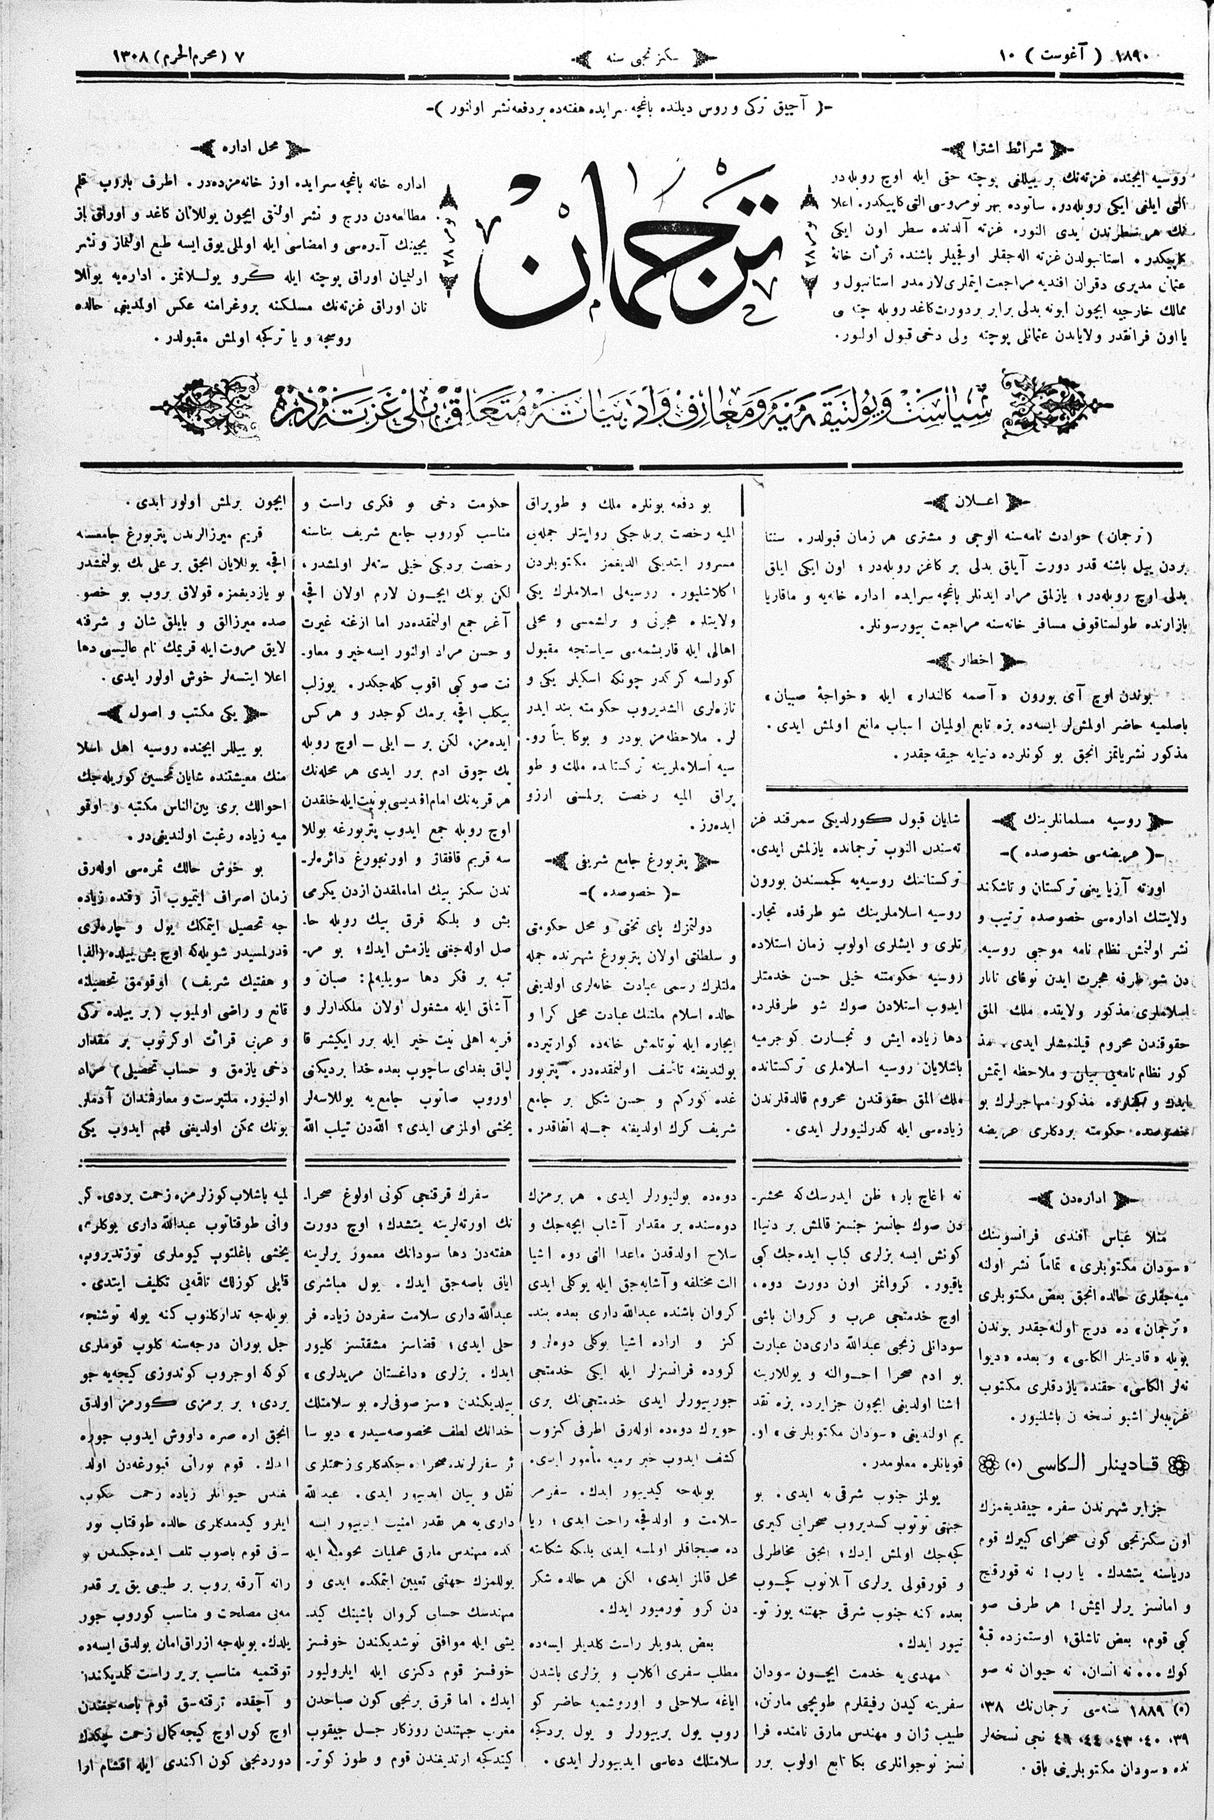 ١٨٩٠ ( آغوست ) ١٠
سكزنجی سنه
٧ ( محرم الحرم ) ١٣٠٨
-( آچیق تركی و روس دیلنده باغچه سرایده هفته‌ده بر دفعه نشر اولنور )-
شرائط اشترا
روسیه ایچنده غزته‌نك بر ییللغی پوچته حقی ایله اوچ روبله‌در
التی ایلغی ایكی روبله‌در. ساتوده بهر نومروسی التی كاپیكدر. اعلا
نك هر سطرندن یدی النور. غزته آلدنده سطر اون ایكی
كاپیكدر. استانبولدن غزته اله‌جقلر اوقجیلر باشنده قرأت خانهٔ
ممالك خارجیه ایچون ابونه بدلی برابر بر دورت كاغد روبله
یا اون فرانقدر ولایاتدن عثمانلی پوچته ولی دخی قبول اولنور.
ترجمان
محل اداره
اداره خانه باغچه سرایده اوز خانه‌مزده‌در. اطرف یاروپ قلم
مطالعه‌دن درج و نشر اولنق ایچون یوللانان كاغد و اوراق از
یجینك آدره‌سی و امضاسی ایله اولملی یوق ایسه طبع اولنماز و نشر
اولنمیان اوراق پوچته ایله كرو یوللانمز. اداره‌یه یوللا
نان اوراق غزته‌نك مسلكنه پروغرامنه عكس اولمدیغی حالده
روسجه و یا تركجه اولمش مقبولدر.
اعلان
(ترجمان) حوادث نامه‌سنه الوجی و مشتری هر زمان قبولدر. سنتا
بردن ییل باشنه قدر دورت آیلق بدلی بر كاغز روبله‌در؛ اون ایكی ایلق
بدلی اوچ روبله‌در؛ یازلمق مراد ایدنلر باغچه سرایده اداره خانه‌یه و ماقاریا
بازارنده طولستاقوف مسافر خانه‌سنه مراجعت بیورسونلر.
اخطار
بوندن اوچ آی بورون «آصمه كالندار» ایله «خواجهٔ صبیان»
باصلمیه حاضر اولمش‌لر ایسه‌ده بزه تابع اولمیان اسباب مانع اولمش ایدی.
مذكور نشریاتمز انجق بو كونلرده دنیایه چیقه‌جقدر.
روسیه مسلمانلرینك
-( عریضه‌سی خصوصده )-
اورته آزیا یعنی تركستان و تاشكند
ولایتنك اداره‌سی خصوصده ترتیب و
نشر اولنمش نظام نامه موجبی روسیه‌
دن شو طرفه هجرت ایدن نوغای تاتار
اسلاملری مذكور ولایتده ملك المق
حقوقندن محروم قیلنمشلر ایدی. مذ
كور نظام نامه‌یی بیان و ملاحظه ایتمش
ایدك و مذكور مهاجرلرك بو
خصوصده حكومته بردكلری عریضه
شایان قبول كورلدیكی سمرقند غز
ته‌سندن النوپ ترجمانده یازلمش ایدی.
تركستانك روسیه‌یه كچمسندن بورون
روسیه اسلاملرینك شو طرفده تجار
تلری و ایشلری اولوپ زمان استلاده
روسیه حكومتنه خیلی حسن خدمتلر
ایدوب استلادن صوك شو طرفلرده
دها زیاده ایش و تجارت كوجرمیه
باشلایان روسیه اسلاملری تركستانده
ملك المق حقوقندن محروم قالدقلرندن
زیاده‌سی ایله كدرلنیورلر ایدی.
بو دفعه بونلره ملك و طوپراق
المیه رخصت بریله‌جكی روایتلر جمله‌یی
مسرور ایتدیكی الدیغمز مكتوبلردن
اكلاشلیور. روسیه‌لی اسلاملرك یكی
ولایتلره هجرتی و یراشمسی و محلی
اهالی ایله قاریشمه‌سی سیاستجه مقبول
كورلسه كركدر چونكه اسكیلر یكی و
تازه‌لری الشدیروب حكومته بند ایدر
لر. ملاحظه‌مز بودر و بوكا بناً رو
سیه اسلاملرینه تركستانده ملك و طو
پراق المیه رخصت برلمسنی ارزو
ایده‌رز.
پتربورغ جامع شریفی
-( خصوصده )-
دولتمزك پای تختی و محل حكومتی
و سلطنتی اولان پتربورغ شهرنده جمله
ملتلرك رسمی عبادت خانه‌لری اولدیغی
حالده اسلام ملتنك عبادت محلی كرا و
ایجاره ایله نوتلمش خانه‌ده كوارتیرده
بولندیغنه تاسف اولنمقده‌در. پتربور
غده كوركم و حسن شكل بر جامع
شریف كرك اولدیغنه جمله اتفاقدر.
حكومت دخی بو فكری راست و
مناسب كوروب جامع شریف بناسنه
رخصت بردیكی خیلی سنه‌لر اولمشدر،
لكن بونك ایچون لازم اولان اقچه
آغر جمع اولنمقده‌در اما ازغنه غیرت
و حسن مراد اولنور ایسه خیر و معاو
نت صو كبی اقوب كله‌جكدر. یوزلب
بیكلب اقچه برمك كوجدر و هركس
ایده‌مز، لكن بر ــ ایلی ــ اوچ روبله
پك چوق ادم برر ایدی هر محله‌نك
هر قریه‌نك امام افندیسی بو نیت ایله خلقدن
اوچ روبله جمع ایدوب پتربورغه یوللا
سه قریم قافقاز و اورنبورغ دائره‌لر
ندن سكز بیك اماملقدن ازدن یكرمی
بش و بلكه قرق بیك روبله حا
صل اوله‌جغنی یازمش ایدك؛ بو مر
تبه بر فكر دها سویلیه‌لم: صبان و
آشلق ایله مشغول اولان ملكدارلر و
قریه اهلی نیت خیر ایله برر ایكیشر قا
لپاق بغدای ساچوب بعده خدا بردیكنی
اوروب صاتوب جامع‌یه یوللاسه‌لر
یخشی اولمزمی ایدی؟ الله‌دن تیلب الله
ایچون برلمش اولور ایدی.
قریم میرزالرندن پتربورغ جامعسنه
اقچه یوللایان انجق بر علی بك بولنمشدر
بو یازدیغمزه قولاق بروب بو خصو
صده میرزالق و بایلق شان و شرفنه
لایق مروت ایله قریمك نام عالیسی دها
اعلا ایتسه‌لر خوش اولور ایدی.
یكی مكتب و اصول
بو ییللر ایچنده روسیه اهل اسلا
منك معیشتنده شایان تحسین كوریله‌جك
احوالك بری بین‌الناس مكتبه و اوقو
میه زیاده رغبت اولندیغی‌در.
بو خوش حالك ثمره‌سی اوله‌رق
زمان اصراف ایتمیوب آز وقتده زیاده
جه تحصیل ایتمك یول و چاره‌لری
قدرلمسیدر شویله‌كه اوچ بش ییلده (الفبا
و هفتیك شریف) اوقومق تحصیلنه
قانع و راضی اولمیوب (بر ییلده تركی
و عربی قرائت اوكرنوب بر مقدار
دخی یازمق و حساب تحصیلی) مراد
اولنیور. ملتپرست و معارفمندان آدملر
بونك ممكن اولدیغی فهم ایدوب یكی
اداره‌دن
مثلا عباس افندی فرانسوینك
«سودان مكتوبلری» تماماً نشر اولنه
میه‌جقلری حالده انجق بعض مكتوبلری
«ترجمان» ده درج اولنه‌جقدر بوندن
بویله «قادینلر الكاسی» و بعده «دیوا
نه‌لر الكاسی» حقنده یازدقلری مكتوب
غریبه‌لر اشبو نسخه‌دن باشلنیور.
قادینلر الكاسی (٥)
جزایر شهرندن سفره چیقدیغمزك
اون سكزنجی كونی صحرای كبیرك قوم
دریاسنه یتشدك. یا رب! نه قورقنج
و امانسز یرلر ایمش! هر طرف صو
كبی قوم، بعض تاشلق؛ اوستمزده قبهٔ
كوك ... نه انسان، نه حیوان نه صو
(٥) ١٨٨٩ سنه‌سی ترجمان‌نك ٣٨،
٣٩، ٤٠، ٤٣، ٤٤، ٤٦ نجی نسخه‌لر
نده «سودان مكتوبلرینی باق.
نه اغاج بار؛ ظن ایدرسك‌كه محشر
دن صوك جانسز جنسز قالمش بر دنیا!
كونش ایسه بزلری كباب ایده‌جك كبی
یاقیور. كروانمز اون دورت دوه،
اوچ خدمتجی عرب و كروان باشی
سودانلی زنجی عبدالله داری‌دن عبارت
بو ادم صحرا احوالنه و یوللارینه
اشنا اولدیغی ایچون جزایرد. بزه نقد
یم اولندیغی «سودان مكتوبلرینی» او
قویانلره معلومدر.
یولمز جنوب شرقی‌یه ایدی. بو
جهتی توتوب كسدیروب صحرای كبری
كچه‌جك اولمش ایدك؛ انجق مخاطرلی
و قورقولی یرلری آیلانوب كچوب
بعده كنه جنوب شرقی جهتنه یوز تو
تیور ایدك.
مهدی‌یه خدمت ایچون سودان
سفرینه كیدن رفیقلرم طوپجی مارتن،
طبیب ژان و مهندس مارق نامنده فرا
نسز نوجوانلری بكا تابع اولوب برر
دوه‌ده بولنیورلر ایدی. هر برمزك
دوه‌سنده بر مقدار آشاب ایچه‌جك و
سلاح اولدقدن ماعدا التی دوه اشیا
الت مختلفه و آشایه‌جق ایله یوكلی ایدی
كروان باشنده عبدالله داری بعده بند
كز و اراده اشیا یوكلی دوه‌لر و
كروده فرانسزلر ایله ایكی خدمتجی
جوربیورلر ایدی خدمتجی‌نك بری
كشف ایدوب خبر برمیه مأمور ایدی.
بویله‌جه كیدییور ایدك. سفرمز
سلامت و اولدقچه راحت ایدی؛
ده صیجاقلر اولمسه ایدی بلكه شكاتنه
محل قالمز ایدی، لكن هر حالده شكر
دن كرو تورمیور ایدك.
بعض بدویلر راست كلدیلر ایسه‌ده
مطلب سفری اكلاب و بزلری باشدن
ایاغه سلاحلی و اوروشمیه حاضر كو
روب یول بریبورلر و یول بردكجه
سلامتلك دعاسی ایدییورلر ایدی.
سفرك قرقنجی كونی اولوغ صحرا
نك اورته‌لرینه یتشدك؛ اوچ دورت
هفته‌دن دها سودانك معمور یرلرینه
ایاق باصه‌جق ایدك. یول مباشری
عبدالله داری سلامت سفردن زیاده فر
حلی ایدی؛ قضاسز مشقتسز كلیور
ایدك. بزلری «داغستان مریدلری»
بیلدیكندن «سز صوفی‌لره بو سلامتلك
خدانك لطف مخصوصه‌سیدر» دیو سا
ئر سفرلرنده صحرا ده چكدكلری زحمتلری
نقل و بیان ایدییور ایدی. عبدالله
داری‌یه هر نقدر امنیت ایدییور ایسه
كده مهندس مارق عملیات نجومیه ایله
یوللمزك جهتی تعیین ایتمكده ایدی و
مهندسك حسابی كروان باشینك كید
یشی ایله موافق توشدیكندن خوفسز
خوفسز قوم دكزی ایله ایلرولیور
ایدك. اما قرق برنجی كون صباحدن
مغرب جهتندن روزكار جسل جیقوب
كیتدكجه ارتدیغندن قوم و طوز كوتر
لمیه باشلاب كوزلرمزه زحمت بردی. كر
وانی طوقتاتوب عبدالله داری یوكلری
یخشی باغلتوب كیوملری توزتدیروپ،
قابلی كوزلك تاقمه‌یی تكلیف ایتدی.
بویله‌جه تداركلنوب كنه یوله توشنجه،
جبل بوران درجه‌سنه كلوپ قوملری
كوكه اوچروب كوندوزی كیجه‌یه جو
یردی؛ بر برمزی كورمز اولدق
انجق اره صره داووش ایدوب جوره
ایدك. قوم بورانی قیبورغه‌دن اولد
یغندن حیوانلر زیاده زحمت چكوب
ایلرو كیدمدكلری حالده طوقتاب تور
سق قوم باصوب تلف ایده‌جكسدن بو
رانه آرقه بروب بر طبیعی یق بر قدر
مه‌یی مصلحت و مناسب كوروب جور
یلدك. بویله‌جه ازراق امان بولدق ایسه‌ده
توقتمیه مناسب بر یر راست كلمدیكندن
و آچقده ترقته‌سق قوم باصه‌جغندن
اوچ كون اوچ كیجه كمال زحمت چكدك
دوردنجی كون اكندی ایله اقشام ارا